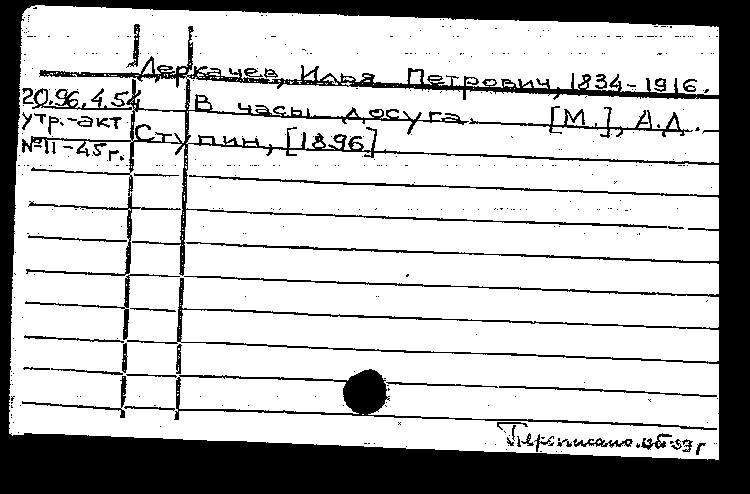 Деркачев, Илья Петрович, 1834-1916.
20.96.4.54 В часы досуга. [М.], А.Д.
утр.-акт Ступин, [1896]
№II-45г.
Переписано.